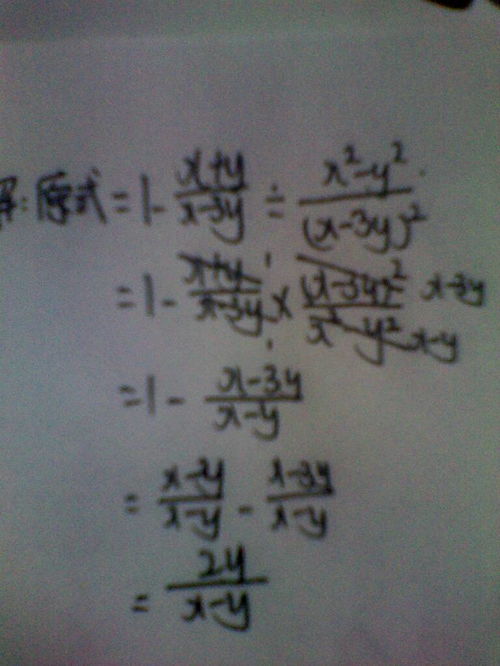 解:原式=1-\frac{x+y}{x-3y}÷\frac{x²-y²}{(x-3y)²}
=1-\frac{x+y}{x-3y}×\frac{(x-3y)²}{x²-y²} x-3y x-y
=1-\frac{x-3y}{x-y}
=\frac{x-y}{x-y}-\frac{x-3y}{x-y}
=\frac{2y}{x-y}